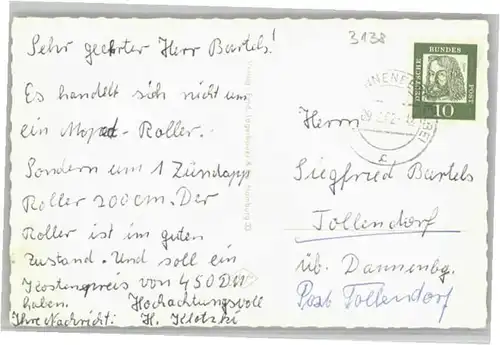 Sehr geehrter Herr Bartels!
Es handelt sich nicht um
ein Moped-Roller.
Sondern um 1 Zündapp
Roller 200 cm. Der
Roller ist im guten
Zustand. Und soll ein
Kostenpreis von 450 DM
haben. Hochachtungsvoll
Ihre Nachricht: H. Klotzki
3138
DEUTSCHE BUNDESPOST
10
Herrn
Siegfried Bartels
Tollendorf
üb. Dannenbg.
Post Tollendorf